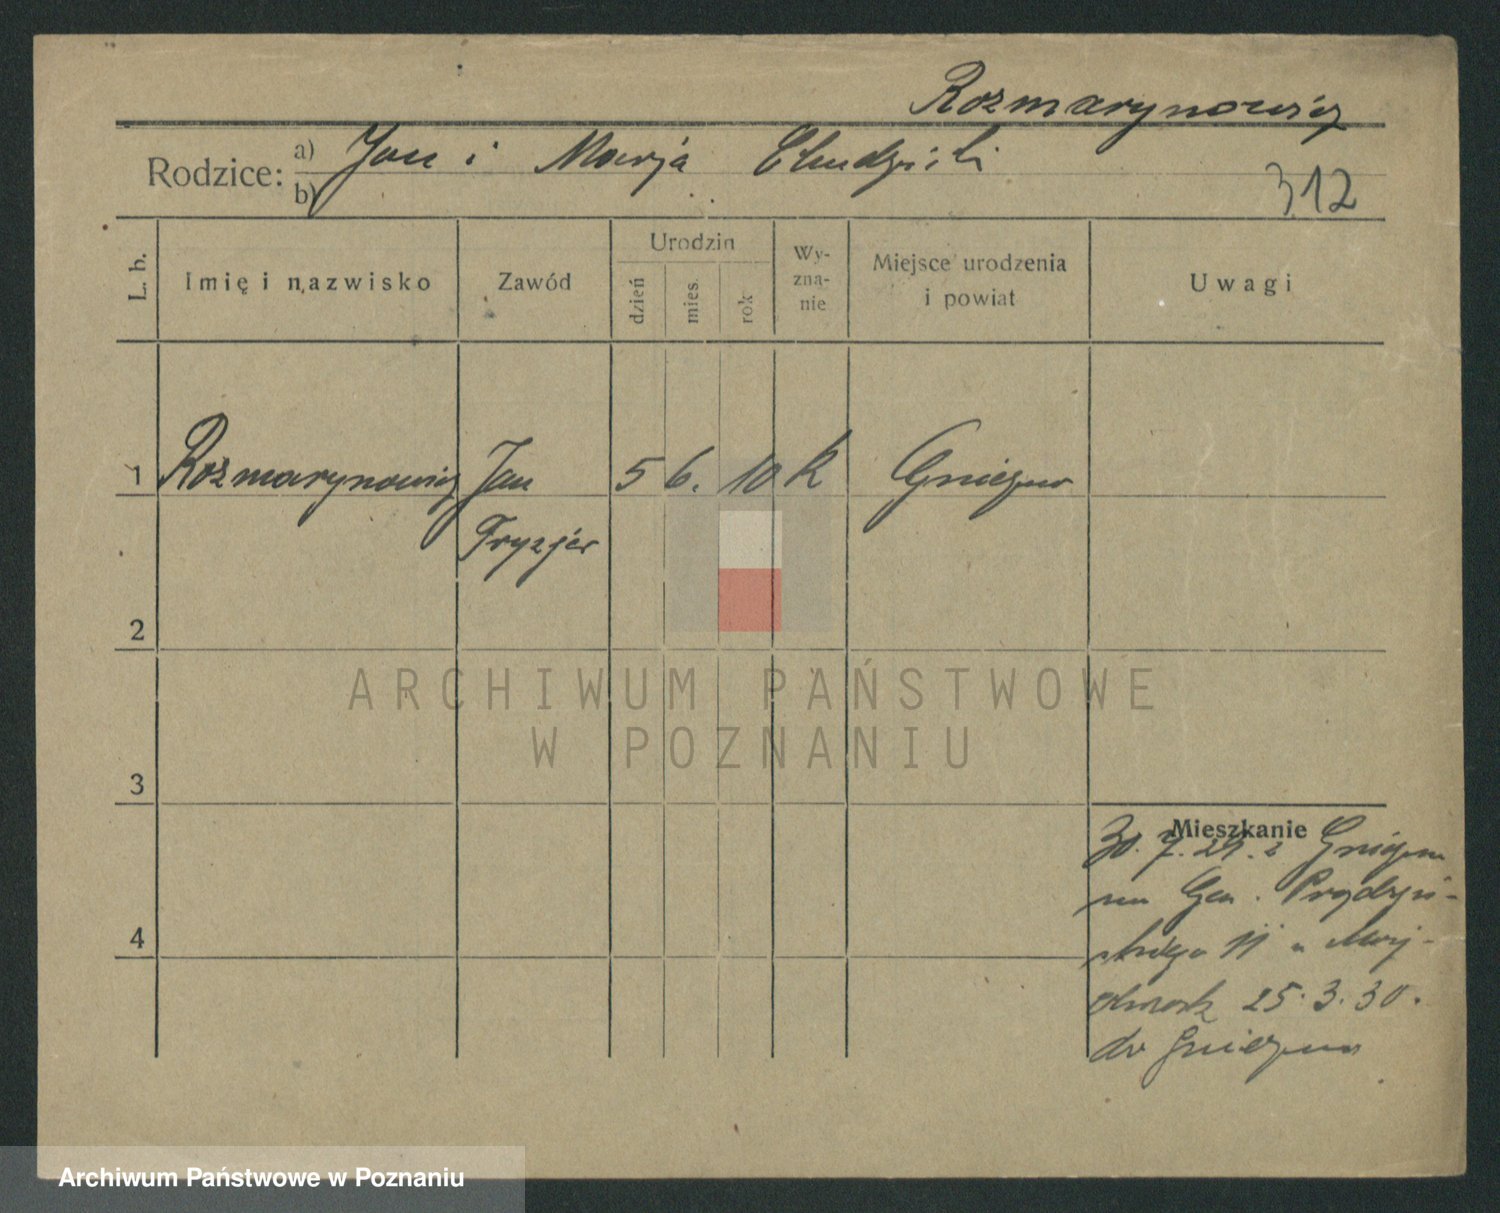 Rozmarynowicz
Rodzice: a) Jan i Marja Chudzicki
b)
312
L. b.
Imię i nazwisko
Zawód
Urodzin
dzień
mies.
rok
Wy-
zna-
nie
Miejsce urodzenia
i powiat
Uwagi
1 Rozmarynowicz Jan 5 6. 10 K Gniezno
Fryzjer
2
ARCHIWUM PAŃSTWOWE
W POZNANIU
3
Mieszkanie
30. 7. 29. z Gniezna
Gen. Prądzyń-
skiego 11 u Maj-
25. 3. 30.
do Gniezna
4
Archiwum Państwowe w Poznaniu